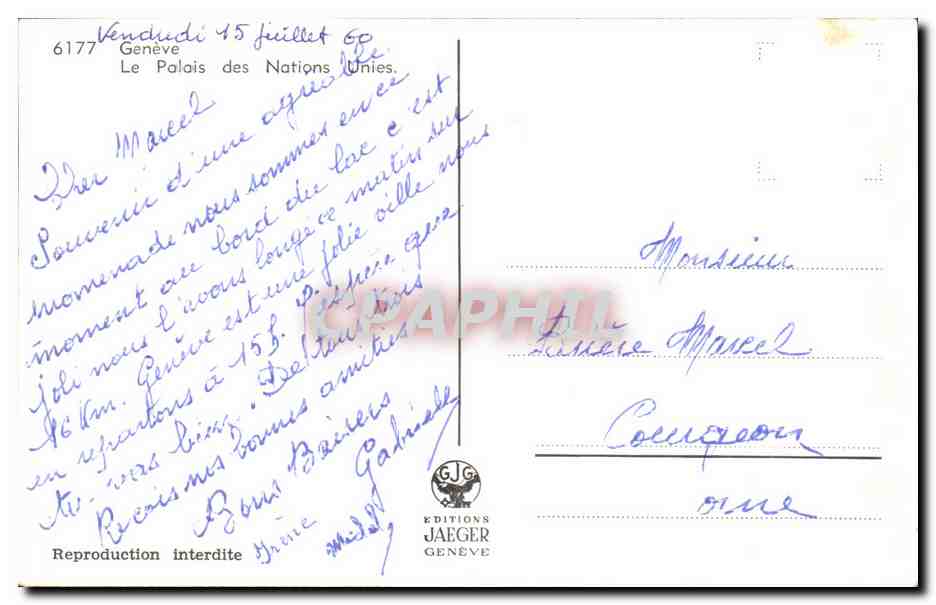 Vendredi 15 juillet 60
6177 Genève
Le Palais des Nations Unies.
Cher Marcel
Souvenir d'une agréable
promenade nous sommes en ce
moment au bord du lac c'est
joli nous l'avons longé ce matin sur
16 Km. Genève est une jolie ville nous
en repartons à 15h. J'espère que
tu vas bien. De tous trois
Reçois nos bonnes amitiés
Bons Baisers
Irène Gabrielle
Michel
Monsieur
Marcel
orne
CPAPHIL
GJG
EDITIONS
JAEGER
GENÈVE
Reproduction interdite